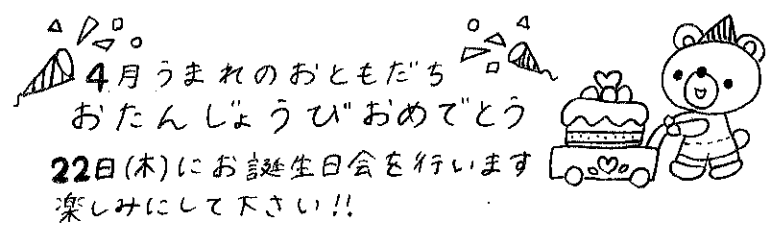 4月うまれのおともだち
おたんじょうびおめでとう
22日(木)にお誕生日会を行います
楽しみにして下さい!!